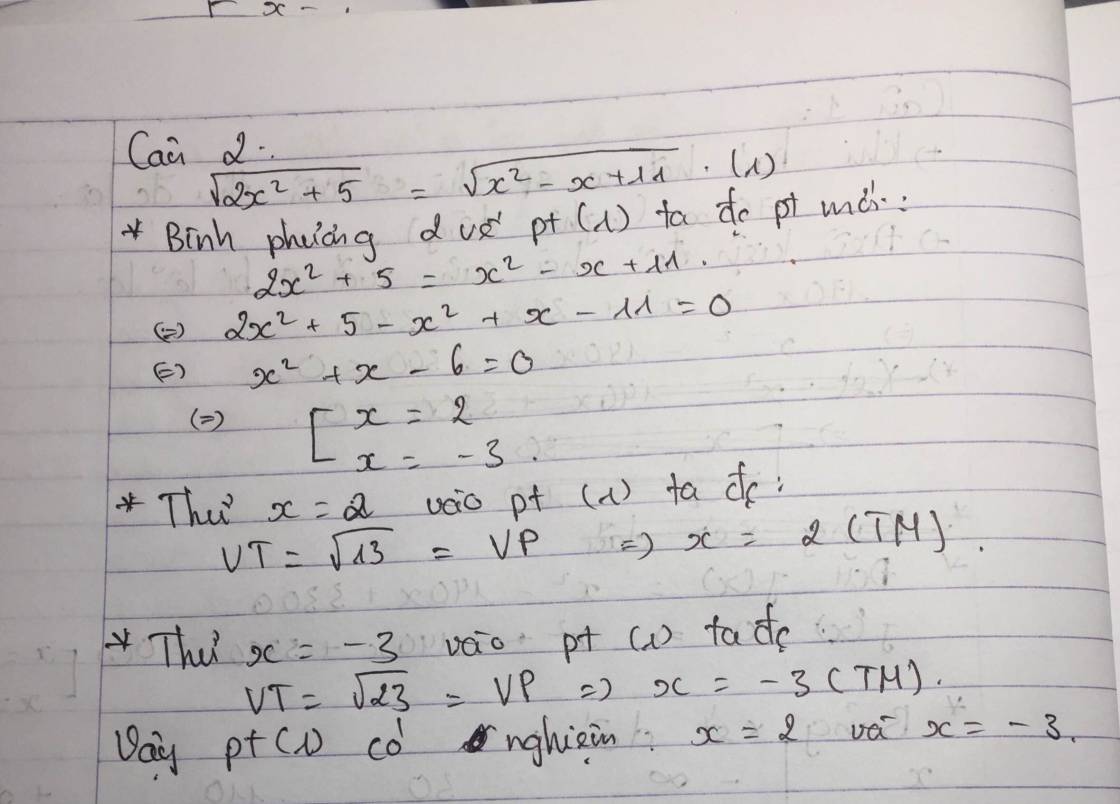 Câu 2:
√2x² + 5 = √x² - x + 11 . (1)
* Bình phương 2 vế pt (1) ta đc pt mới:
2x² + 5 = x² - x + 11 .
(=) 2x² + 5 - x² + x - 11 = 0
(=) x² + x - 6 = 0
(=) [ x = 2
x = -3 .
* Thử x = 2 vào pt (1) ta đc :
VT = √13 = VP => x = 2 (TM) .
* Thử x = -3 vào pt (1) ta đc
VT = √23 = VP => x = -3 (TM) .
Vậy pt (1) có nghiệm : x = 2 và x = -3 .